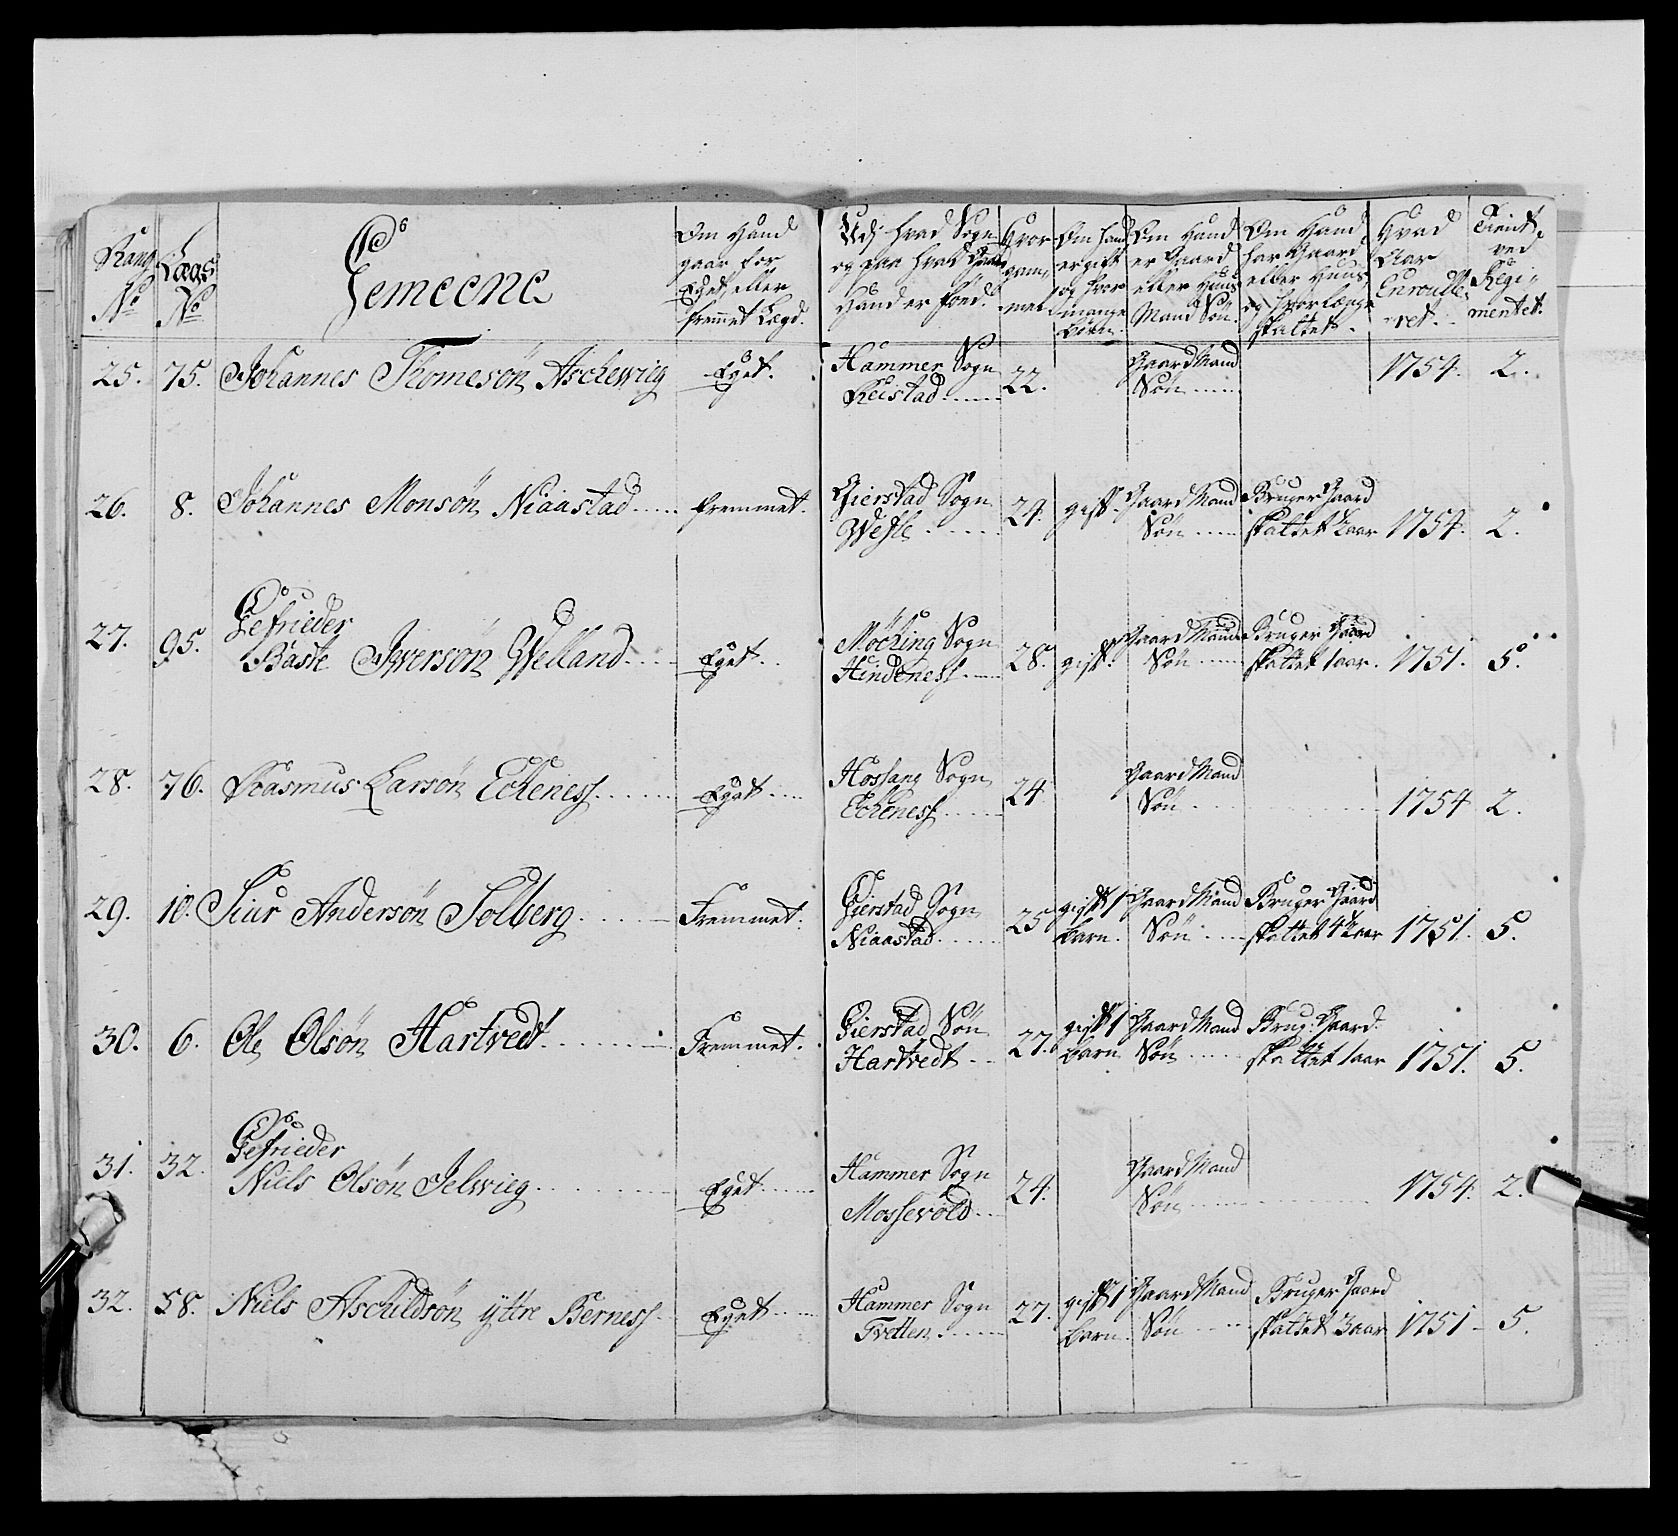 Rang No | Lægs No | Gemeene | Om Hand gaar for Eget eller fremmet Lægd. | Udj hvad Sogn og paa hvad Gaard Hand er fød. | Hvor gam-mel | Om hand er gift og hvor mange børn. | Om Hand er Gaard eller Huus Mand Søn. | Om Hand har Gaard eller Huus og hvor længe skattet. | Hvad Aar Enroulle-ret. | Tient ved Regi-mentet.
25. | 75. | Johannes Thomesøn Aschewieg | Eget. | Hammer Sogn Reistad | 22. | | Gaard Mand Søn | | 1754. | 2.
26. | 8. | Johannes Monsøn Niaastad | fremmet. | Gierstad Sogn Wefle | 24. | gift. | Gaard Mand Søn | Bruger Gaard skattet ½ aar | 1754. | 2.
27. | 95. | Gefrieder Baste Iwersøn Welland | Eget. | Möching Sogn Hindeness | 28. | gift. | Gaard Mand Søn | Bruger Gaard skattet 1 aar. | 1751. | 5.
28. | 76. | Rasmus Larsøn Echeness | Eget | Hossang Sogn Echeness | 24 | | Gaard Mand Søn | | 1754 | 2.
29. | 10. | Siur Andersøn Solberg | Fremmet. | Gierstad Sogn Niaastad | 25 | gift 1 barn. | Gaard Mand Søn | Bruger Gaard skattet 4½ aar | 1751. | 5.
30. | 6. | Ole Olsøn Hartvedt | Fremmet. | Gierstad Søn Hartvedt | 27. | gift 1 barn | Gaard Mand Søn | Brug: Gaard. skattet 1 aar | 1751. | 5.
31. | 32. | Gefrieder Niels Olsøn Jelwieg | Eget | Hammer Sogn Mossevold | 24. | | Gaard Mand Søn | | 1754. | 2.
32. | 58. | Niels Aschildsøn ÿttre Berness | Eget | Hammer Sogn Tvetten | 27. | gift 1 barn. | Gaard Mand Søn | Bruger Gaard skattet 3 aar | 1751 | 5.